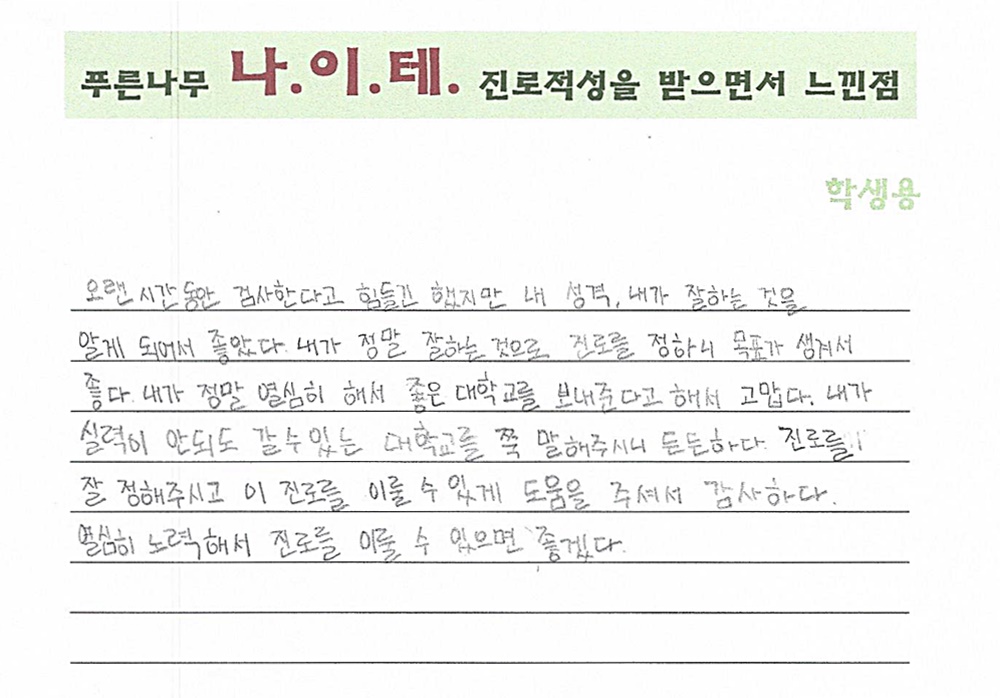 푸른나무 나.이.테. 진로적성을 받으면서 느낀점
학생용
오랜 시간동안 검사한다고 힘들긴 했지만 내 성격, 내가 잘하는 것을
알게 되어서 좋았다. 내가 정말 잘하는 것으로 진로를 정하니 목표가 생겨서
좋다. 내가 정말 열심히 해서 좋은 대학교를 보내준다고 해서 고맙다. 내가
실력이 안되도 갈 수 있는 대학교를 쭉 말해주시니 든든하다. 진로를
잘 정해주시고 이 진로를 이룰 수 있게 도움을 주셔서 감사하다.
열심히 노력해서 진로를 이룰 수 있으면 좋겠다.